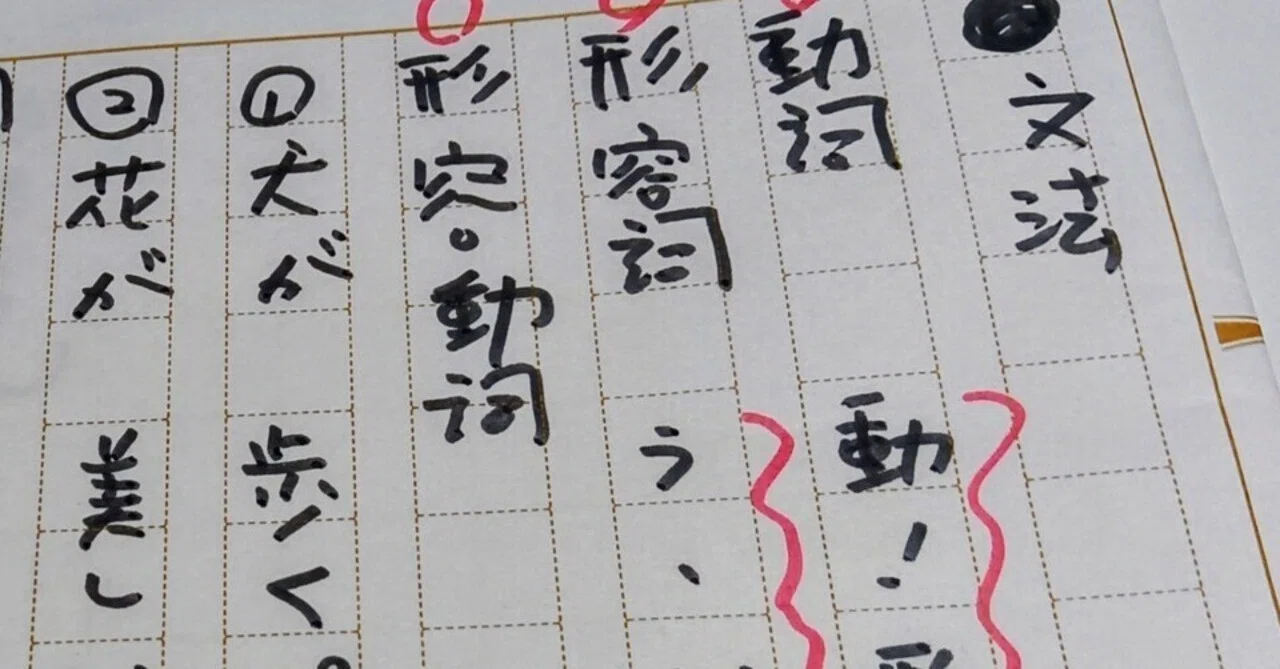 文法
動詞 動！
形容詞 う、
形容動詞
①犬が 歩く
②花が 美し